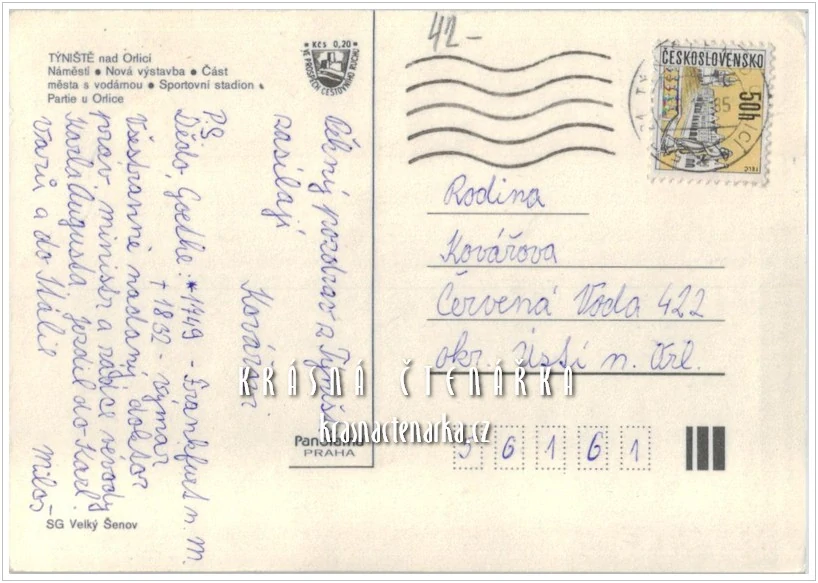 TÝNIŠTĚ nad Orlicí
Náměstí • Nová výstavba • Část
města s vodárnou • Sportovní stadion •
Partie u Orlice
Kčs 0,20
VE PROSPĚCH CESTOVNÍHO RUCHU
42-
ČESKOSLOVENSKO
50h
TELČ
85
Pěkný pozdrav z Týniště
zasílají
Kovářovi
P.S.
Dědo, Goethe: *1749 - Frankfurt n. M.
† 1832 - Výmar
Všestranně nadaný, doktor
práv, ministr a rádce vévody
Karla Augusta jezdil do Karl.
Varů a do Itálie
Miloš
Rodina
Kovářova
Červená Voda 422
okr. Ústí n. Orl.
KRÁSNÁ ČTENÁŘKA
krasnactenarka.cz
Panorama
PRAHA
56161
SG Velký Šenov